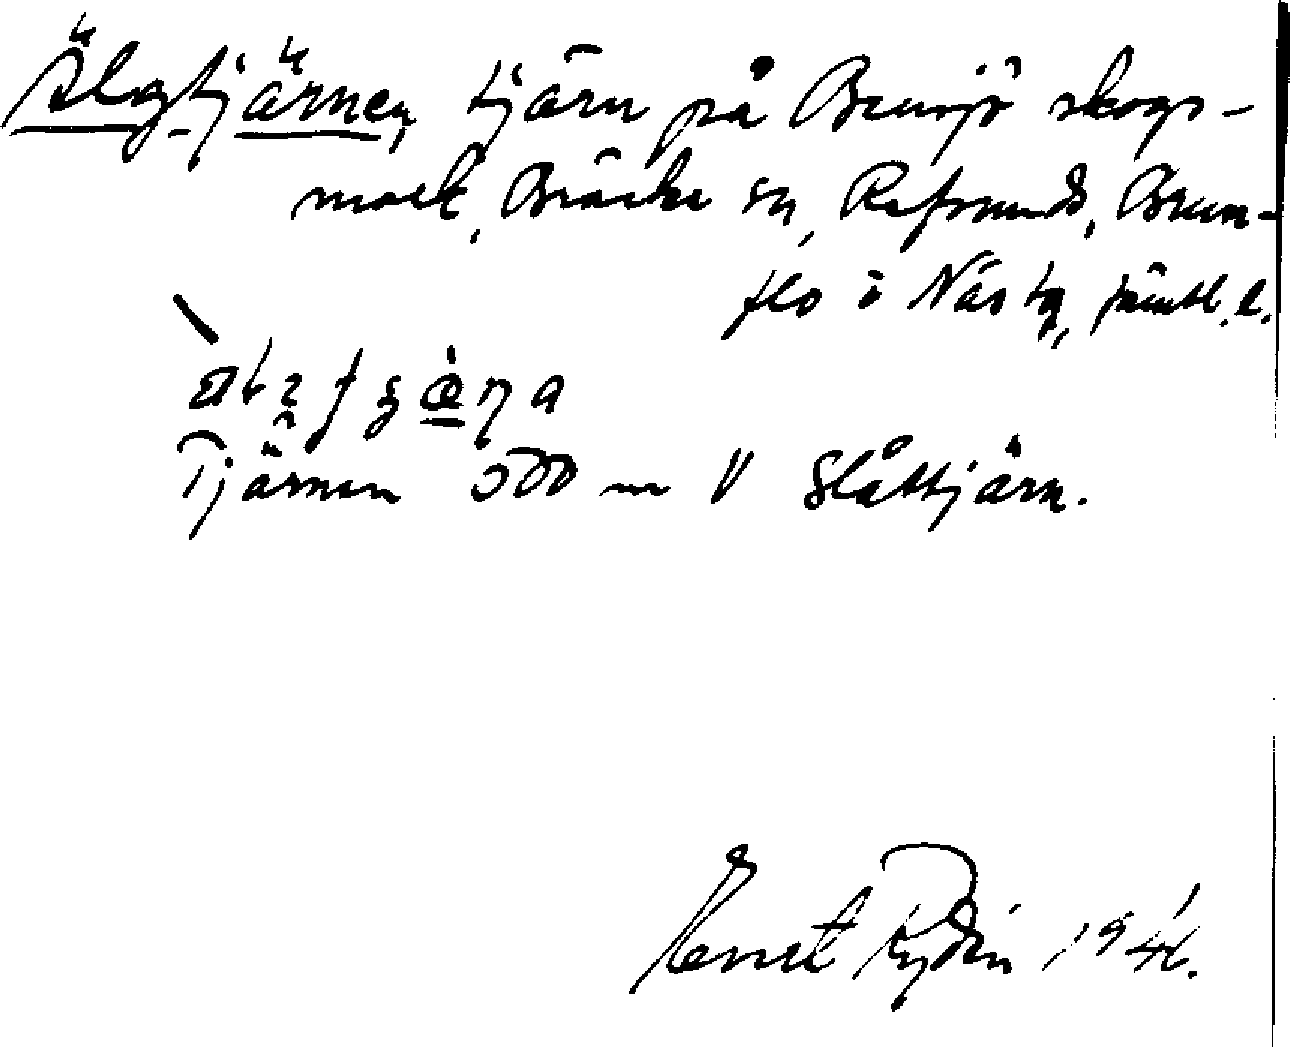 Älgtjärnen, tjärn på Bensjö skogs-
mark, Bräcke sn, Refsunds, Brun-
flo o Näs tg, Jämtl. l.
Tjärnen 500 m V Slåttjärn.
Ernst Rydin 1941.